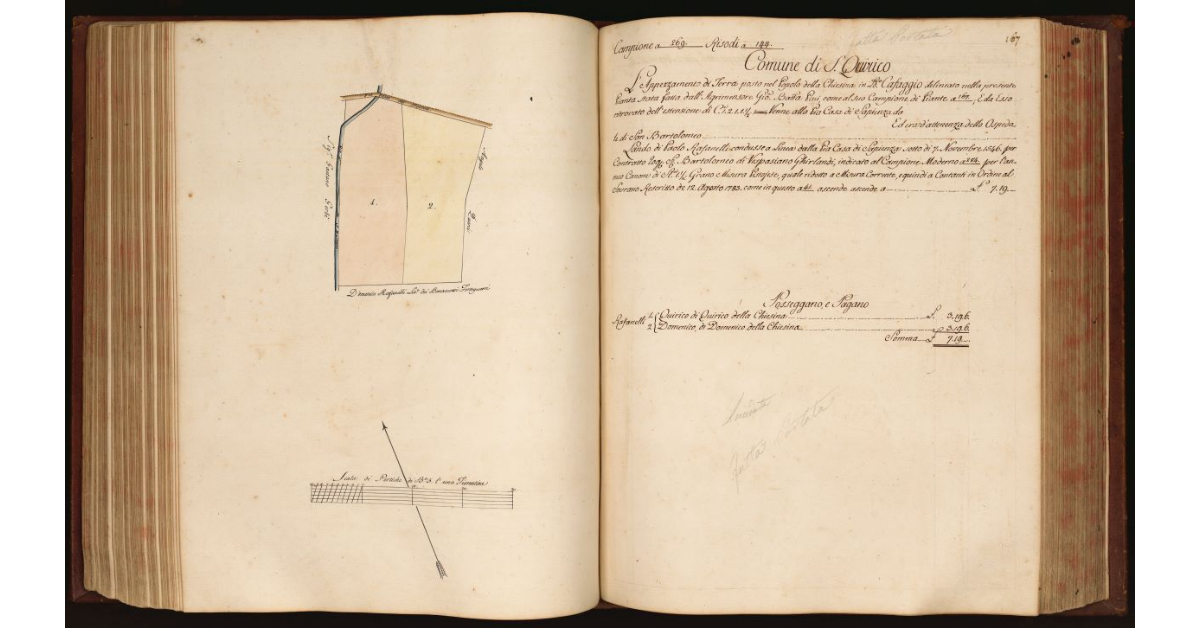 Sig.r
1.
2.
Scala di Pertiche di B.a 5. l'una Fiorentine
Campione a 269. Risodi a 144.
fatta Portata
167
Comune di S. Quirico
L'Appezzamento di Terra posto nel Popolo della Chiesina in L.D. Cafaggio delineato nella presente
Pianta stata fatta dall'Agrimensore Gio. Batta Pini, come al suo Campione di Piante a 160. E da Esso
ritrovato dell'estensione di Venne alla Pia Casa di Sapienza da
Ed era d'attenenza dello Speda
le di San Bartolomeo
Lando di Paolo Rafanelli condusse a Linea dalla Pia Casa di Sapienza sotto di 7. Novembre 1546. per
Contratto rog. Bartolomeo di Vespasiano Ghirlandi, indicato al Campione Moderno a 244. per l'an-
nuo Canone di Grano a Misura Pistojese, quale ridotto a Misura Corrente, e quindi a Contanti in Ordine al
Sovrano Rescritto de 12. Agosto 1783. come in questo a ascende ascende a £ 7.19.
Posseggano, e Pagano
Rafanelli 1. Quirico di Quirico della Chiesina £ 3.19.6
2. Domenico, di Domenico della Chiesina £ 3.19.6
Somma £ 7.19.
fatta Portata